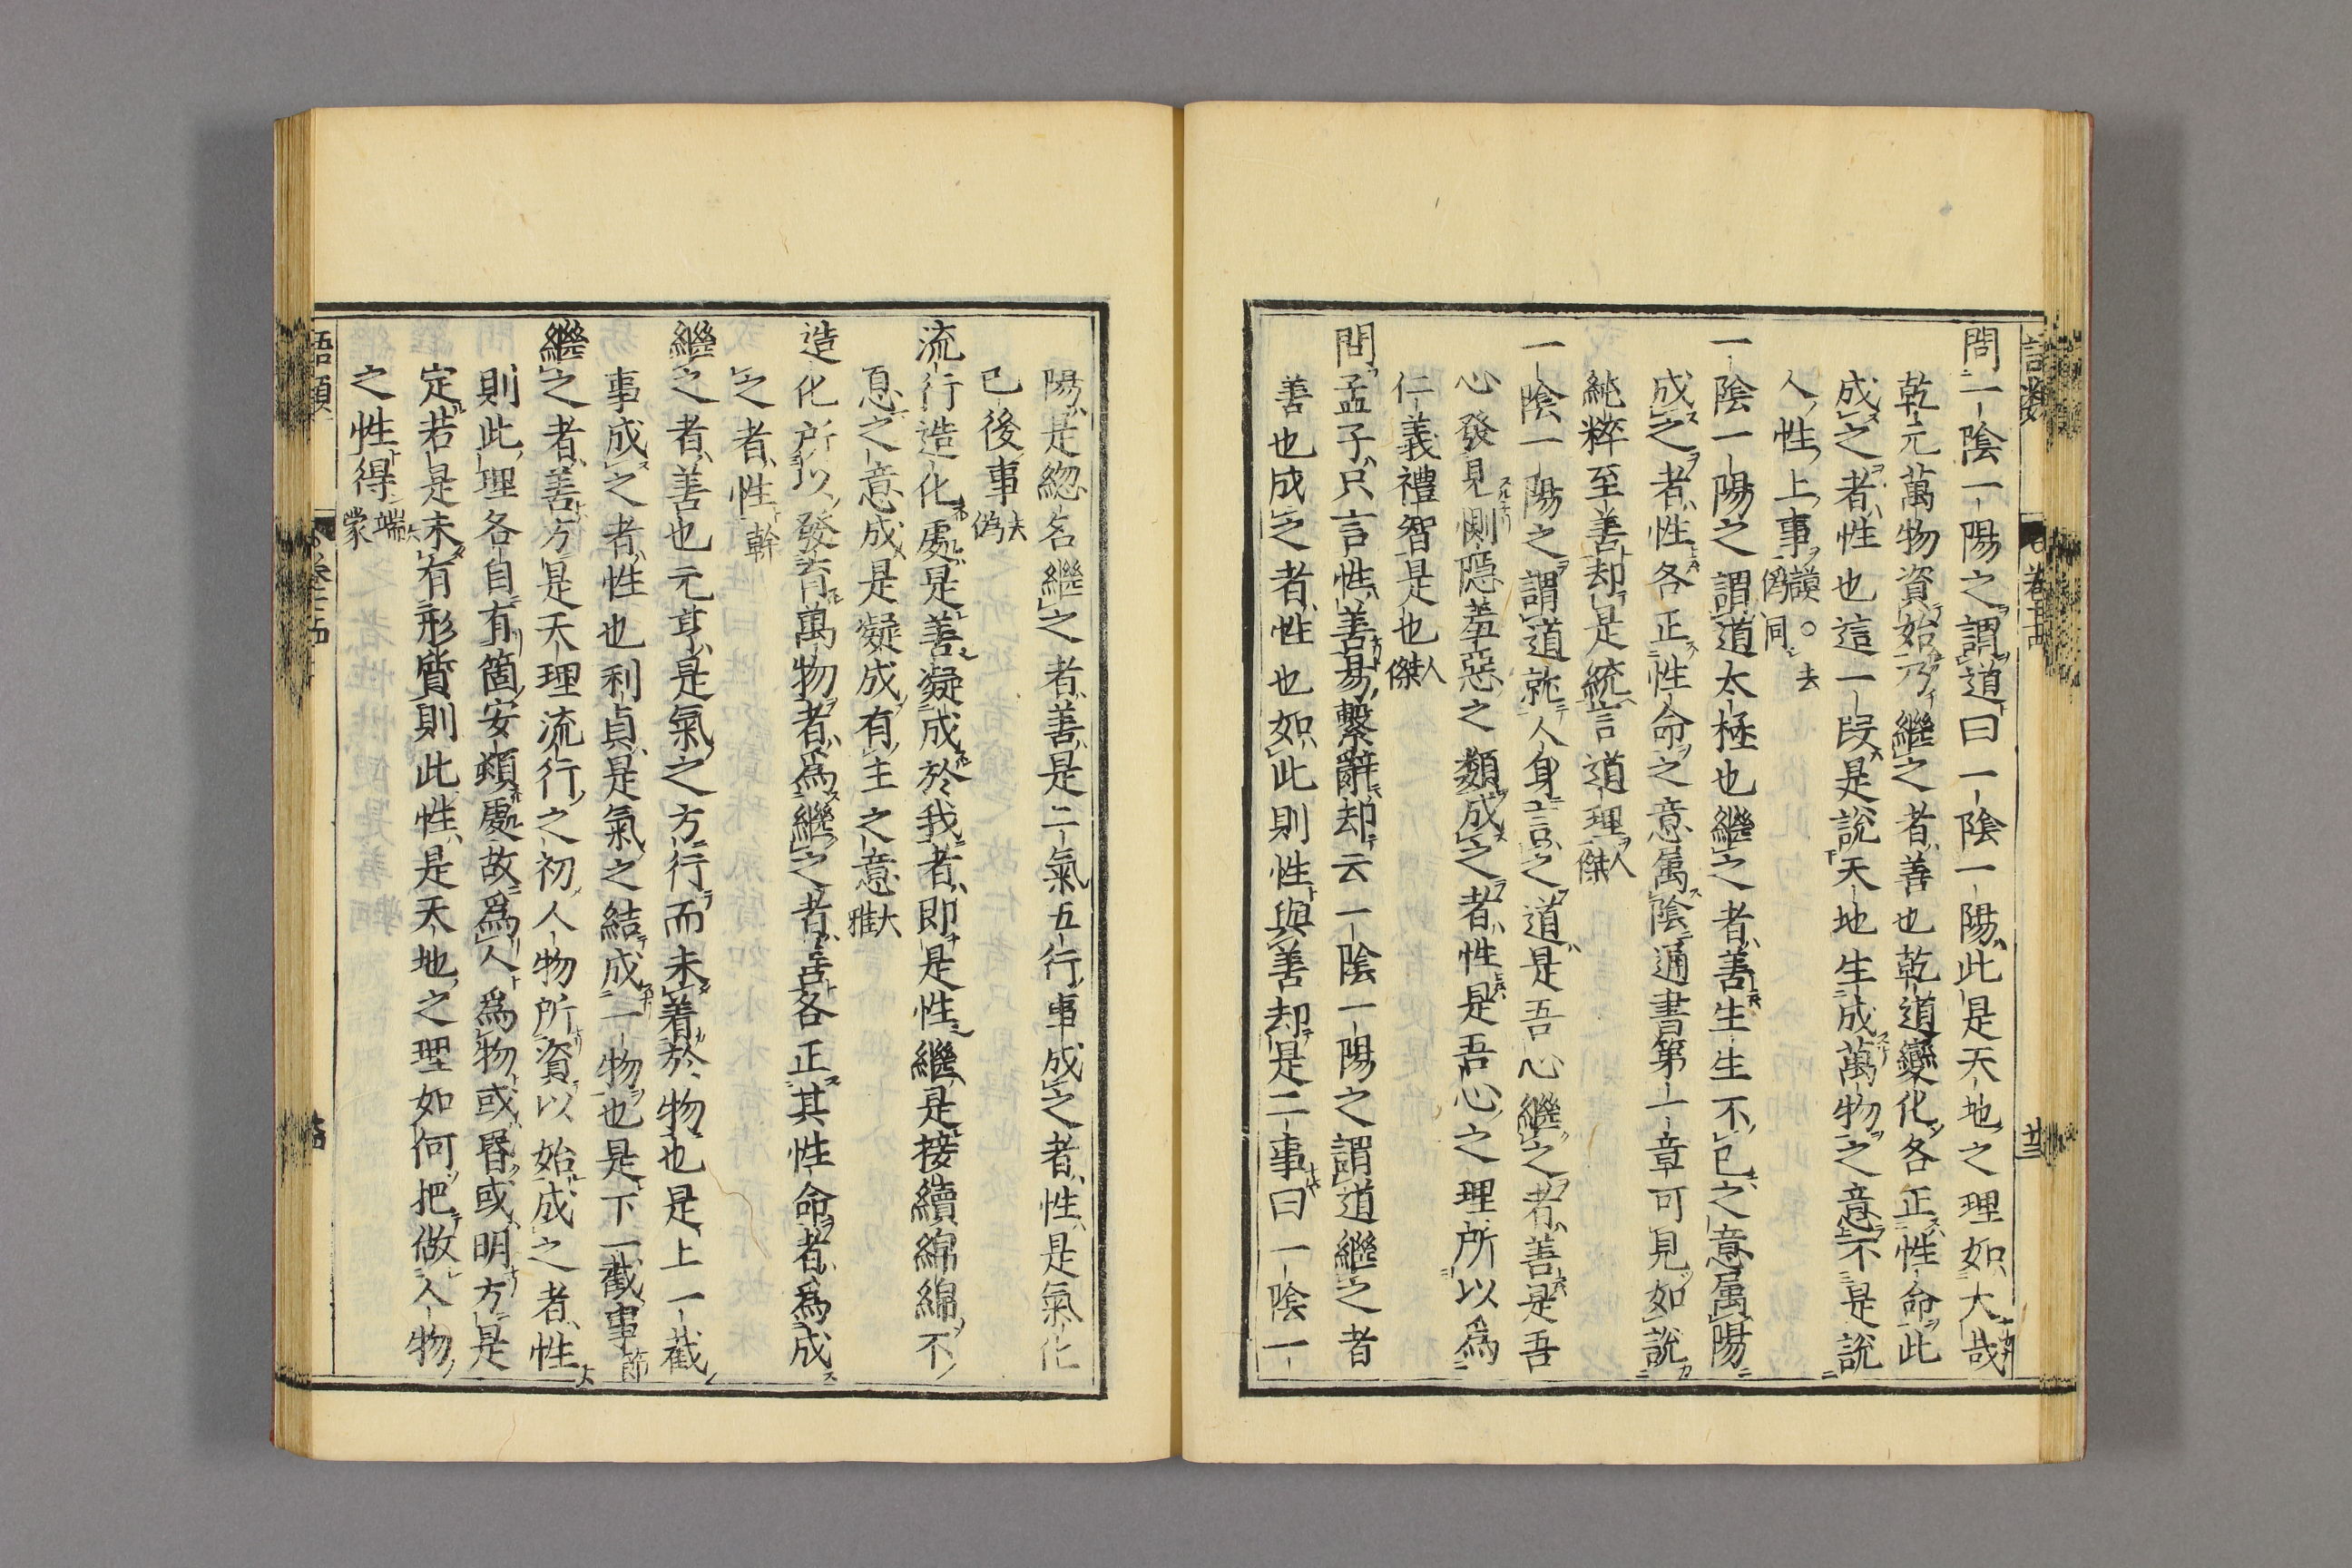 問一陰一陽之謂道曰一陰一陽此是天地之理如大哉
乾元萬物資始乃繼之者善也乾道變化各正性命此
成之者性也這一段是說天地生成萬物之意不是說
人性上事謨 去僞同
一陰一陽之謂道太極也繼之者善生生不已之意屬陽
成之者性各正性命之意屬陰通書第一章可見如說
純粹至善却是統言道理人傑
一陰一陽之謂道就人身言之道是吾心繼之者善是吾
心發見惻隱羞惡之類成之者性是吾心之理所以爲
仁義禮智是也人傑
問孟子只言性善易繫辭却云一陰一陽之謂道繼之者
善也成之者性也如此則性與善却是二事曰一陰一
陽是緫名繼之者善是二氣五行事成之者性是氣化
已後事去僞
流行造化處是善凝成於我者即是性繼是接續綿綿不
息之意成是凝成有主之意大雅
造化所以發育萬物者爲繼之者善各正其性命者爲成
之者性榦
繼之者善也元亨是氣之方行而未着於物也是上一截
事成之者性也利貞是氣之結成一物也是下一截事節
繼之者善方是天理流行之初人物所資以始成之者性
則此理各自有箇安頓處故爲人爲物或昏或明方是
定若是未有形質則此性是天地之理如何把做人物
之性得端蒙